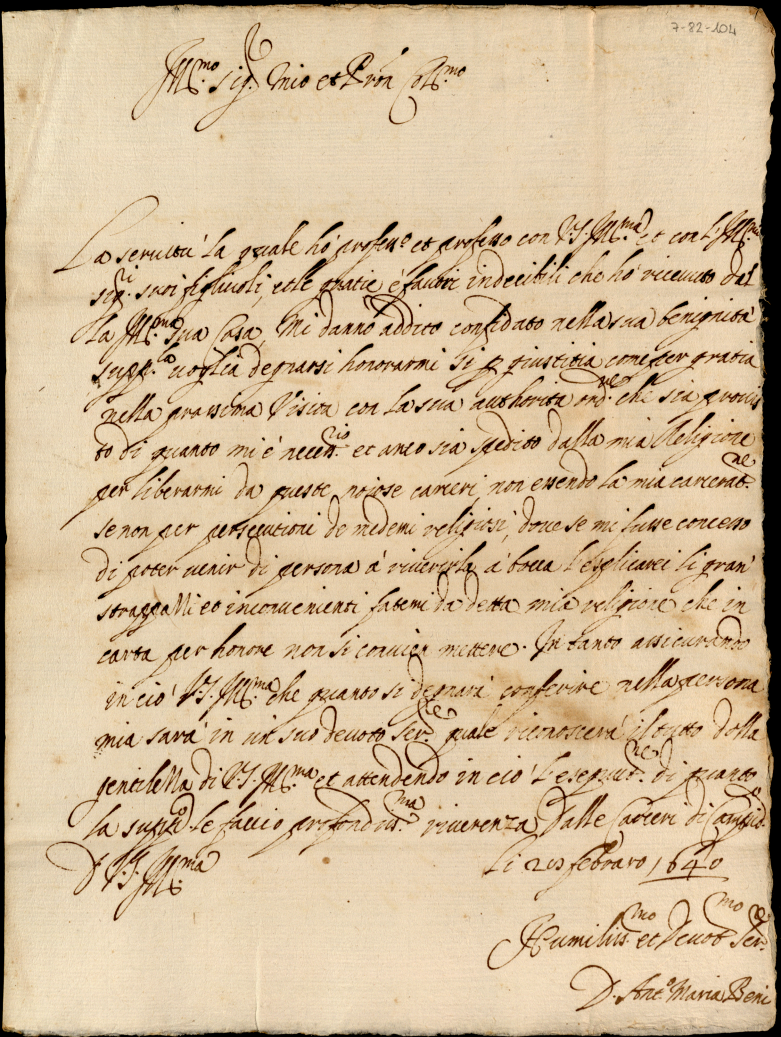 7-82-104
Ill.mo Sig.r mio et Pron Coll.mo
La servitù la quale hò profess.o et professo con V.S. Ill.ma et con l'Ill.mi
sig.ri suoi figlivoli, et le gratie è favori indecibili che hò ricevuto dal
la Ill.ma sua Casa, Mi danno addito confidato nella sua benignità
supp.la voglia degnarsi honorarmi si p giustitia come per gratia
nella prossima Visita con la sua authorità ord.re che sia provis
to di quanto mi è necen.rio et anco sia spedito dalla mia Religione
per liberarmi da queste noiose carceri, non essendo la mia carcerat.ne
se non per persecutioni de medemi religiosi, dove se mi fusse concesso
di poter venir di persona à riverirla à bocca l'esplicarei li gran
strappazzi et inconvenienti fatemi da detta mia religione che in
carta per honore non si convien mettere. In tanto assicurando
in ciò V.S. Ill.ma che quanto si degnarà conferire nella persona
mia sarà in un suo devoto Ser.re quale riconoscerà il tutto dalla
gentilezza di V.S. Ill.ma et attendendo in ciò l'esequt.ne di quanto
la supp.co le faccio profondiss.ma riverenza Dalle Carceri di
D V.S. Ill.ma
Li febraro 1640
Humiliss.mo et Devot.mo Ser.re
D. Ant.o Maria Beni